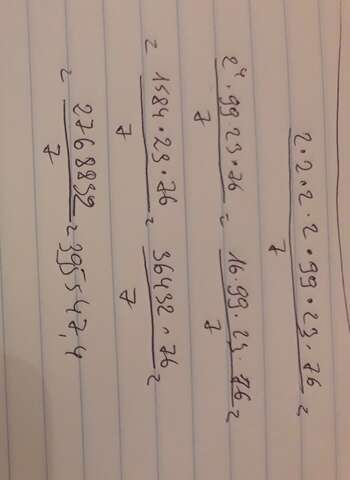 2·2·2·2·99·23·76 =
7
2⁴·99 23·76 = 16·99·23·76 =
7 7
= 1584·23·76 = 36432·76 =
7 7
= 2768832 = 395547,4
7